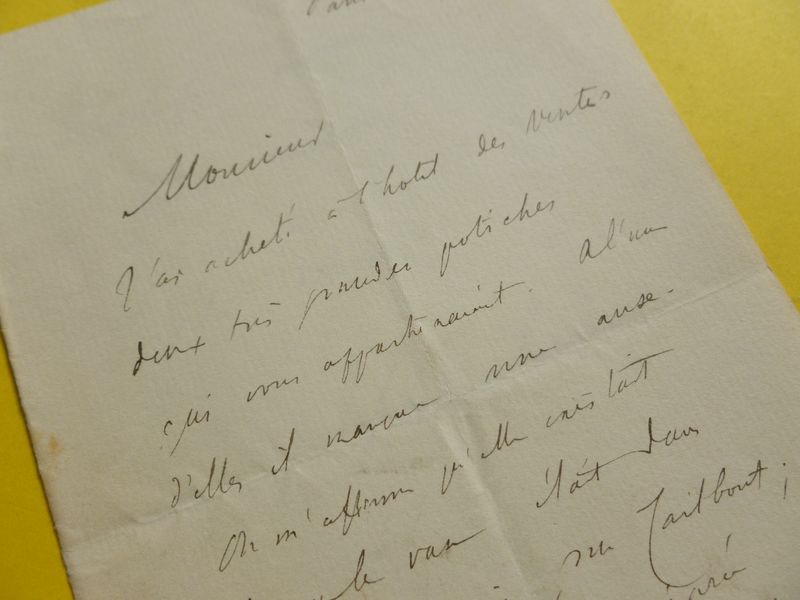 Monsieur
J'ai acheté à l'hotel des ventes
deux très grandes potiches
qui vous appartenaient. A l'une
d'elles il manque une anse.
On m'affirme qu'elle existait
le vase était dans
rue Taitbout;